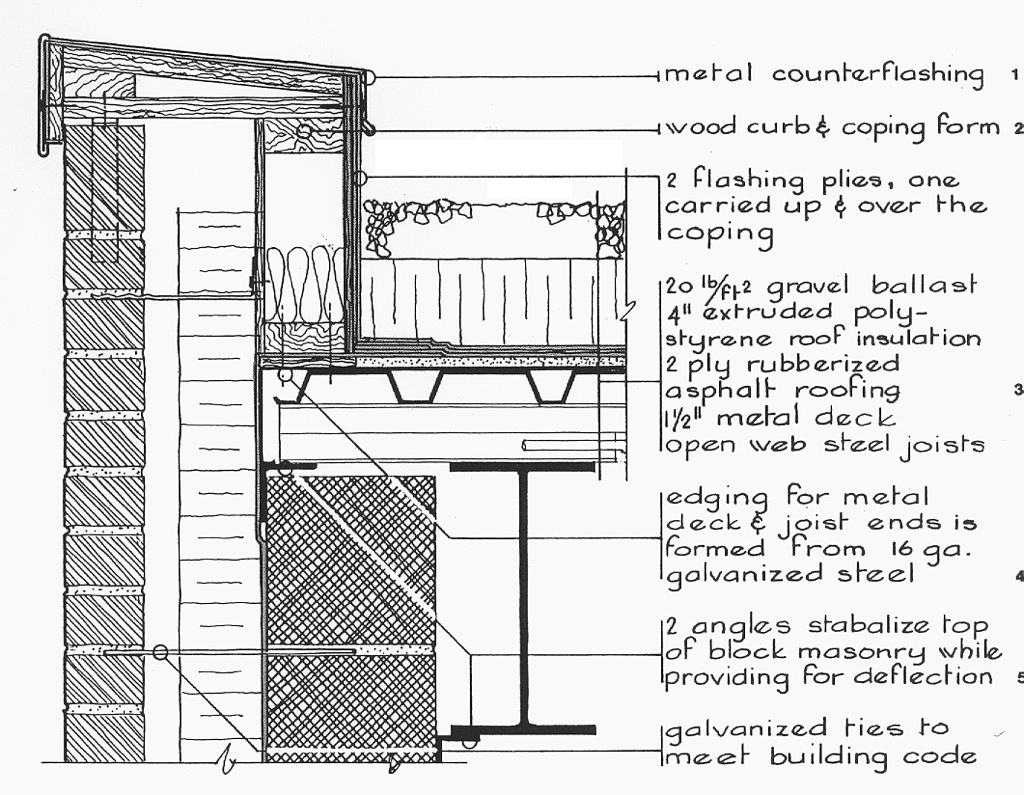 metal counterflashing 1
wood curb & coping form 2
2 flashing plies, one
carried up & over the
coping
20 lb/ft2 gravel ballast
4" extruded poly-
styrene roof insulation
2 ply rubberized
asphalt roofing 3
1½" metal deck
open web steel joists
edging for metal
deck & joist ends is
formed from 16 ga.
galvanized steel 4
2 angles stabalize top
of block masonry while
providing for deflection 5
galvanized ties to
meet building code